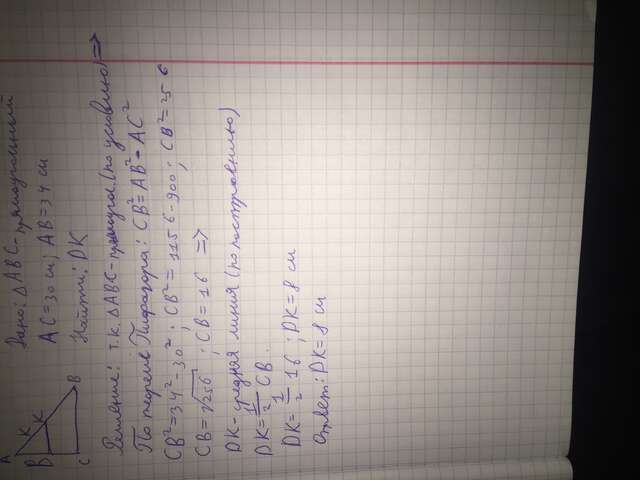 A
Дано: △ABC - прямоугольный
K
B
K
AC = 30 см; AB = 34 см
C
B
Найти: DK
Решение: т.к. △ABC - прямоугол. (по условию) =>
По теореме Пифагора: CB² = AB² - AC²
CB² = 34² - 30² ; CB² = 1156 - 900 ; CB² = 256
CB = √256 ; CB = 16 =>
DK - средняя линия (по построению)
DK = 1/2 CB.
DK = 1/2 16 ; DK = 8 см
Ответ: DK = 8 см